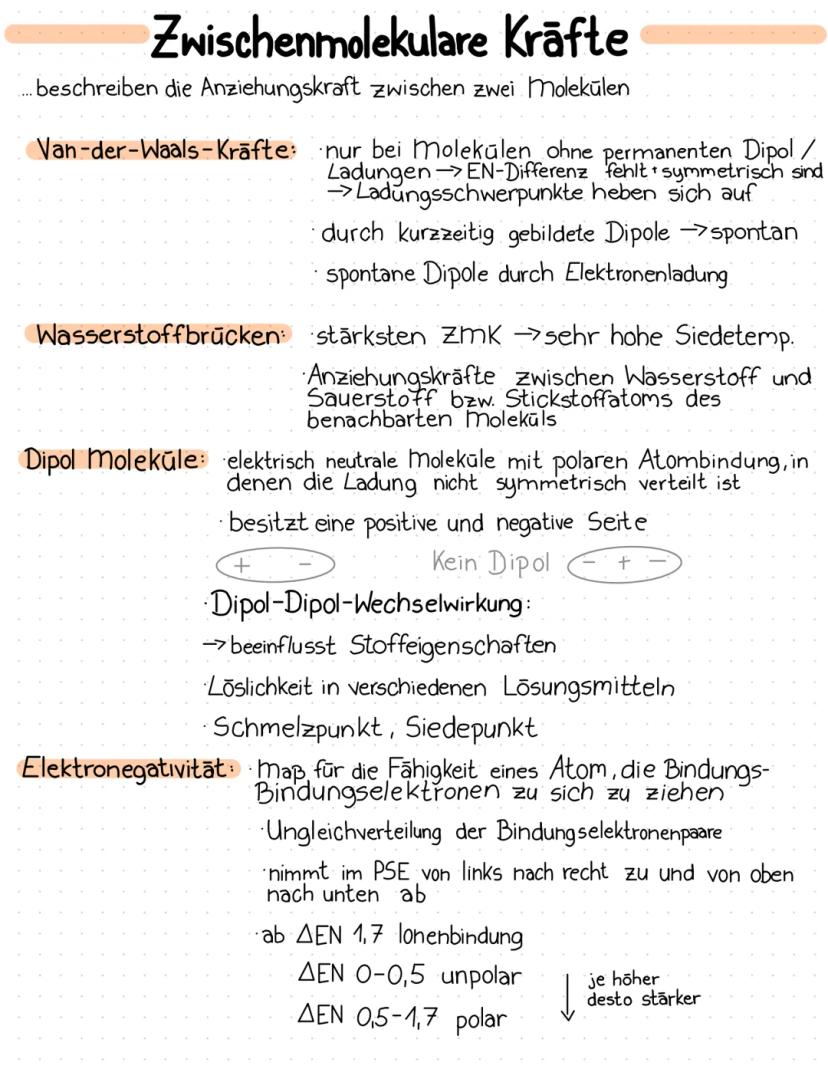 Zwischenmolekulare Kräfte
...beschreiben die Anziehungskraft zwischen zwei Molekülen
Van-der-Waals-Kräfte: ·nur bei Molekülen ohne permanenten Dipol /
Ladungen → EN-Differenz fehlt + symmetrisch sind
→ Ladungsschwerpunkte heben sich auf
· durch kurzzeitig gebildete Dipole → spontan
· spontane Dipole durch Elektronenladung
Wasserstoffbrücken: ·stärksten ZMK → sehr hohe Siedetemp.
·Anziehungskräfte zwischen Wasserstoff und
Sauerstoff bzw. Stickstoffatoms des
benachbarten Moleküls
Dipol Moleküle: ·elektrisch neutrale Moleküle mit polaren Atombindung, in
denen die Ladung nicht symmetrisch verteilt ist
· besitzt eine positive und negative Seite
+ - Kein Dipol - + -
·Dipol-Dipol-Wechselwirkung:
→ beeinflusst Stoffeigenschaften
·Löslichkeit in verschiedenen Lösungsmitteln
· Schmelzpunkt, Siedepunkt
Elektronegativität: · Maß für die Fähigkeit eines Atom, die Bindungs-
Bindungselektronen zu sich zu ziehen
·Ungleichverteilung der Bindungselektronenpaare
·nimmt im PSE von links nach recht zu und von oben
nach unten ab
·ab ΔEN 1,7 Ionenbindung
ΔEN 0-0,5 unpolar
ΔEN 0,5-1,7 polar
↓ je höher
desto stärker